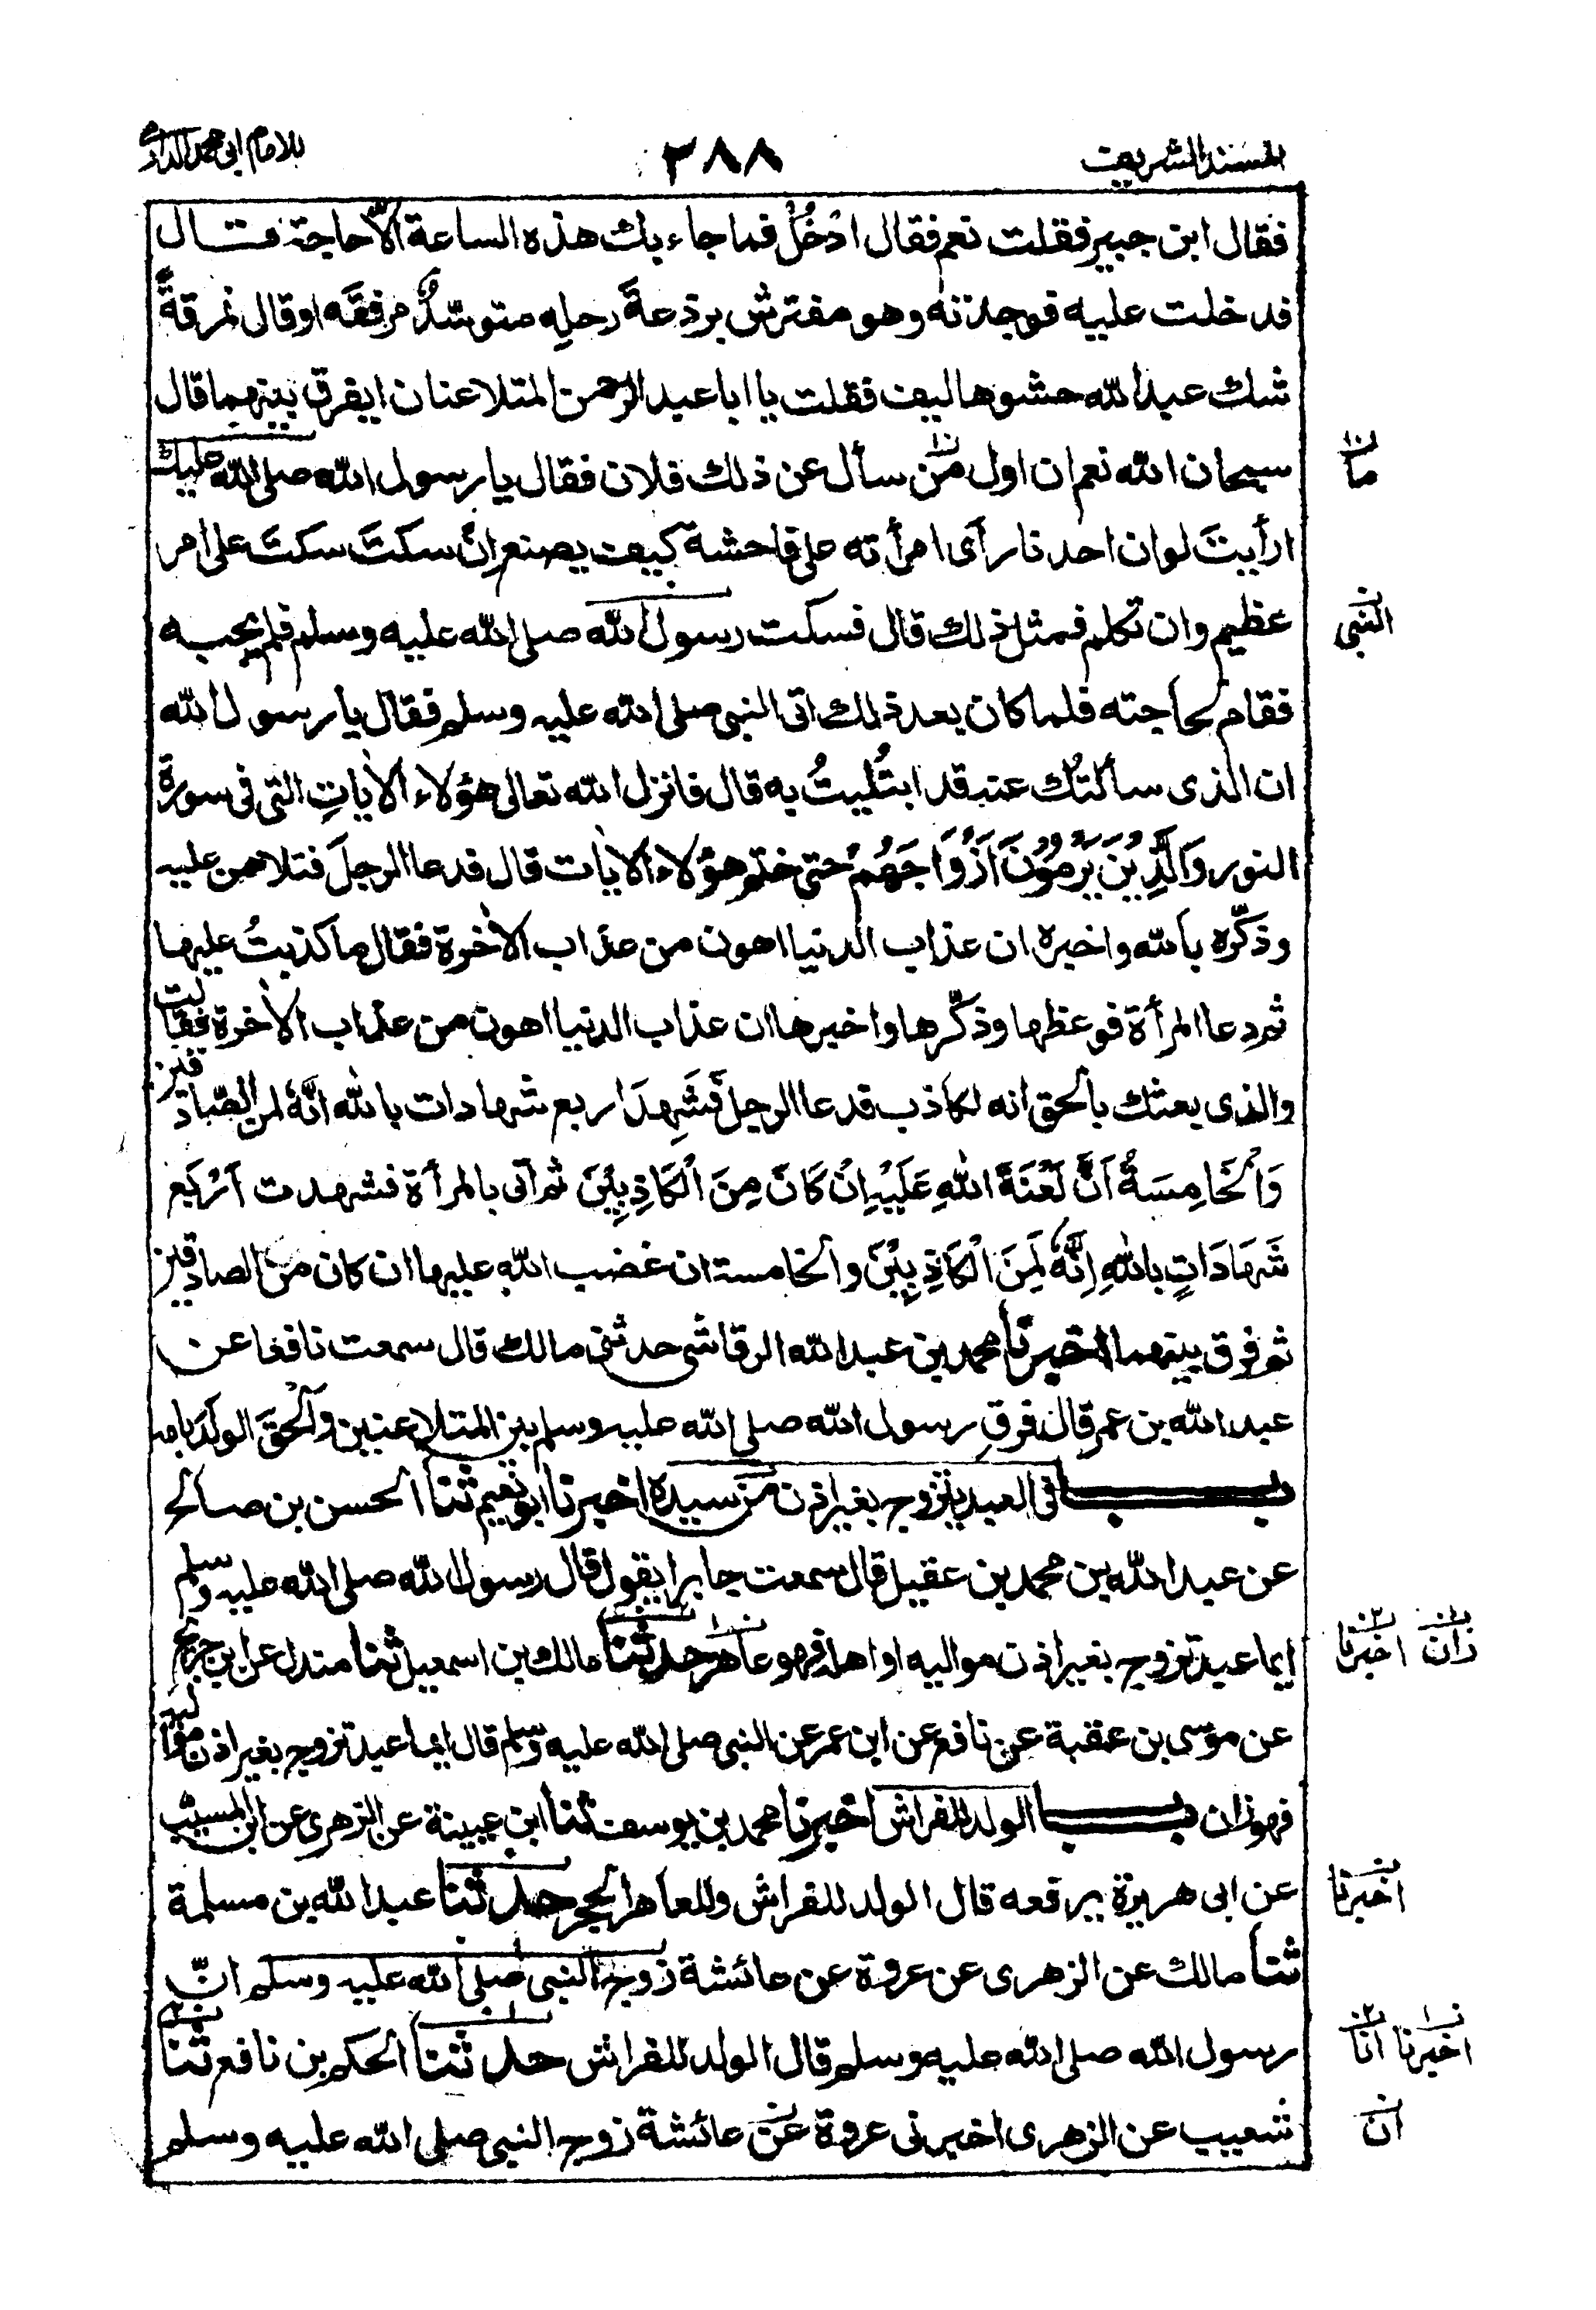 المسند الشريف
٣٨٨
للامام ابى محمد الدارمى
فقال ابن جبير فقلت نعم فقال ادْخُلْ فما جاء بك هذه الساعة اِلّا حاجة فقال
فدخلت عليه فوجدته وهو مفترش برذعةَ رحلِه متوسّدٌ مرفقَه او قال نمرقةً
شك عبد الله حشوها ليف فقلت يا ابا عبد الرحمن المتلاعنان ايفرق بينهما قال
سبحان الله نعم ان اول مَن سأل عن ذلك فلان فقال يا رسول الله صلى الله عليك
ما
ارأيتَ لو ان احدنا رآى امرأته على فاحشة كيف يصنع اِنْ سكتَ سكتَ على امر
عظيم وان تكلم فمثل ذلك قال فسكت رسول الله صلى الله عليه وسلم فلم يجبه
النبى
فقام لحاجته فلما كان بعد ذلك اتى النبى صلى الله عليه وسلم فقال يا رسول الله
ان الذى سألتُك عنه قد ابتُليتُ به قال فانزل الله تعالى هؤلاء الاٰياتِ التى فى سورة
النور وَالَّذِيْنَ يَرْمُوْنَ اَزْوَاجَهُمْ حتى ختم هؤلاء الاٰيات قال فدعا الرجلَ فتلاهن عليه
وذكّره بالله واخبره ان عذاب الدنيا اهون من عذاب الاٰخرة فقال ما كذبتُ عليها
ثم دعا المرأة فوعظها وذكّرها واخبرها ان عذاب الدنيا اهون من عذاب الاٰخرة فقالت
والذى بعثك بالحق انه لكاذب فدعا الرجل فَشَهِدَ اربع شهادات بالله اِنَّهٗ لمن الصّادقين
وَالْخَامِسَةُ اَنَّ لَعْنَةَ اللهِ عَلَيْهِ اِنْ كَانَ مِنَ الْكَاذِبِيْنَ ثم اتى بالمرأة فشهدت اَرْبَع
شَهَادَاتٍ بِاللهِ اِنَّهٗ لَمِنَ الْكَاذِبِيْنَ والخامسة ان غضب الله عليها ان كان من الصادقين
ثم فرق بينهما اخبرنا محمد بن عبد الله الرقاشى حدثنى مالك قال سمعت نافعا عن
عبد الله بن عمر قال فرق رسول الله صلى الله عليه وسلم بين المتلاعنين وألْحَقَ الولدَ بامه
بــــاب فى العبد يتزوج بغير اذن من سيده اخبرنا ابو نعيم ثنا الحسن بن صالح
عن عبد الله بن محمد بن عقيل قال سمعت جابرا يقول قال رسول الله صلى الله عليه وسلم
ايما عبد تزوج بغير اذن مواليه او اهله فهو عاهر حدثنا مالك بن اسمعيل ثنا مندل عن ابن جريج
زان اخبرنا
عن موسى بن عقبة عن نافع عن ابن عمر عن النبى صلى الله عليه وسلم قال ايما عبد تزوج بغير اذن مواليه
فهو زان بــــاب الولد للفراش اخبرنا محمد بن يوسف ثنا ابن عيينة عن الزهرى عن ابن المسيب
عن ابى هريرة يرفعه قال الولد للفراش وللعاهر الحجر حدثنا عبد الله بن مسلمة
اخبرنا
ثنا مالك عن الزهرى عن عروة عن عائشة زوج النبى صلى الله عليه وسلم انّ
رسول الله صلى الله عليه وسلم قال الولد للفراش حدثنا الحكم بن نافع ثنا
اخبرنا انا
شعيب عن الزهرى اخبرنى عروة عن عائشة زوج النبى صلى الله عليه وسلم
ان